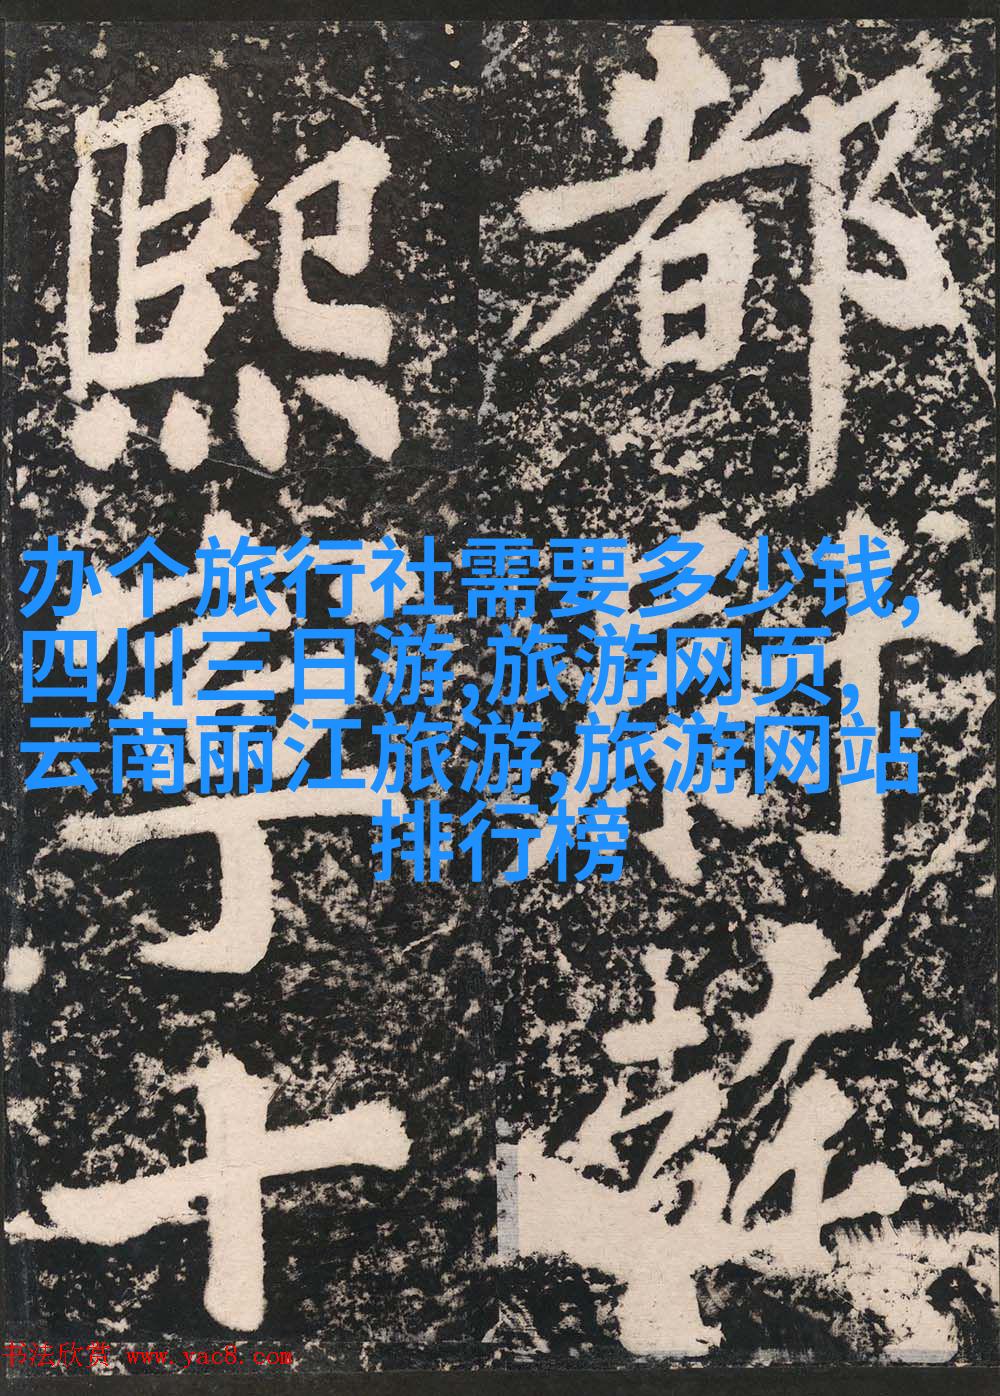 都
熙
寧
十
办个旅行社需要多少钱,
四川三日游,旅游网页,
云南丽江旅游,旅游网站
排行榜
书法欣赏 www.yac8.com